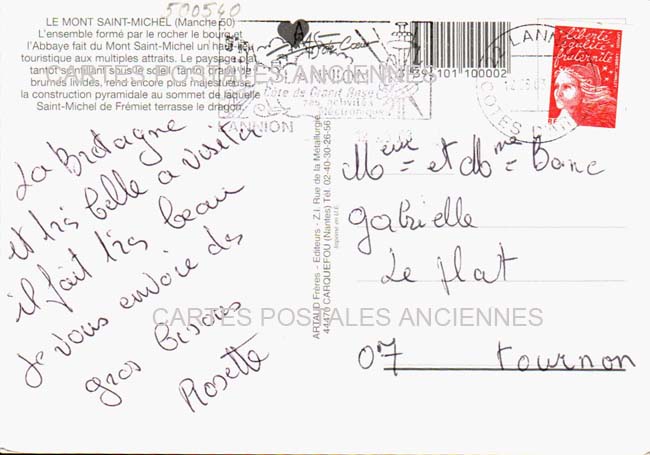 500540
LE MONT SAINT-MICHEL (Manche 50)
L'ensemble formé par le rocher le bourg et
l'Abbaye fait du Mont Saint-Michel un haut-lieu
touristique aux multiples attraits. Le paysage plat
tantôt souriant sous le soleil, tantôt drapé de
brumes livides, rend encore plus majestueuse,
la construction pyramidale au sommet de laquelle
Saint-Michel de Frémiet terrasse le dragon.
La Bretagne
et très belle a visiter
il fait très beau
je vous envoie des
gros bisous
Rosette
LANNION
Côte de Granit Rose
ses activités
électroniques
LANNION
101 100002
ARTAUD Frères - Editeurs - Z.I. Rue de la Métallurgie
44470 CARQUEFOU (Nantes) Tél. 02-40-30-26-56
Imprimé en U.E.
LANNION
liberté
égalité
fraternité
Meur et Mme Banc
Gabrielle
Le plat
07 tournon
CARTES POSTALES ANCIENNES
CARTES POSTALES ANCIENNES